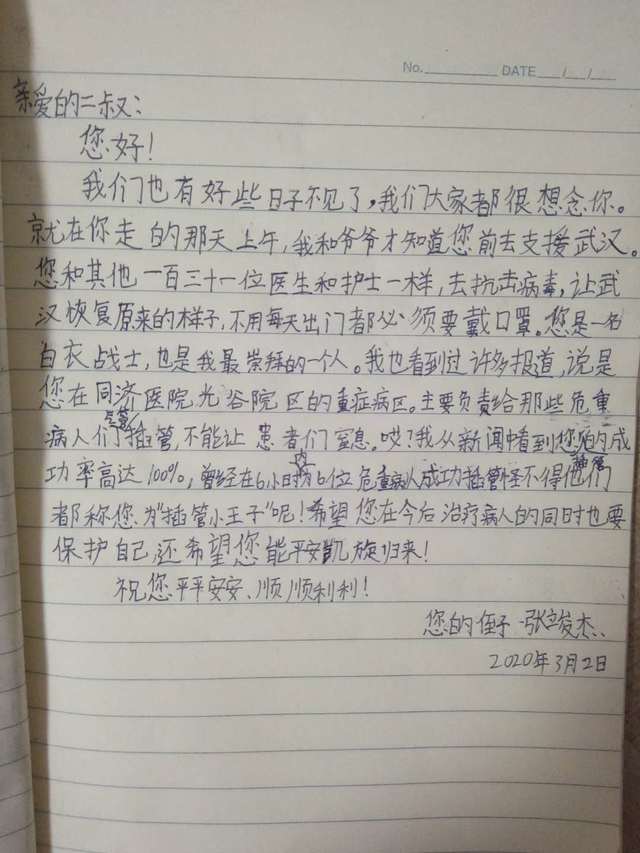 No. DATE / /
亲爱的二叔：
您好！
我们也有好些日子不见了，我们大家都很想念你。
就在你走的那天上午，我和爷爷才知道您前去支援武汉。
您和其他一百三十一位医生和护士一样，去抗击病毒，让武
汉恢复原来的样子，不用每天出门都必须要戴口罩。您是一名
白衣战士，也是我最崇拜的一个人。我也看到过许多报道，说是
您在同济医院光谷院区的重症病区。主要负责给那些危重
病人们气管插管，不能让患者们窒息。哎？我从新闻中看到您的成
功率高达100%，曾经在6小时内为6位危重病人成功插管怪不得他们
都称您为“插管小王子”呢！希望您在今后治疗病人的同时也要
保护自己，还希望您能平安凯旋归来！
祝您平平安安、顺顺利利！
您的侄子 张竣杰
2020年3月2日